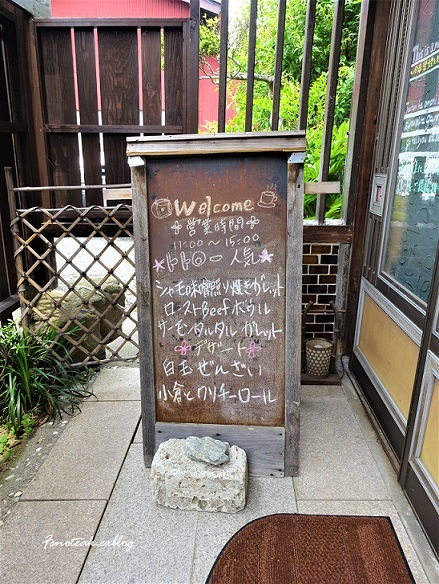 Welcome
営業時間
11:00～15:00
トト@一人気
シャモ味噌照り焼きガレット
ローストBeefボウル
サーモンタルタルガレット
デザート
白玉ぜんざい
小倉とクリチーロール
This is a